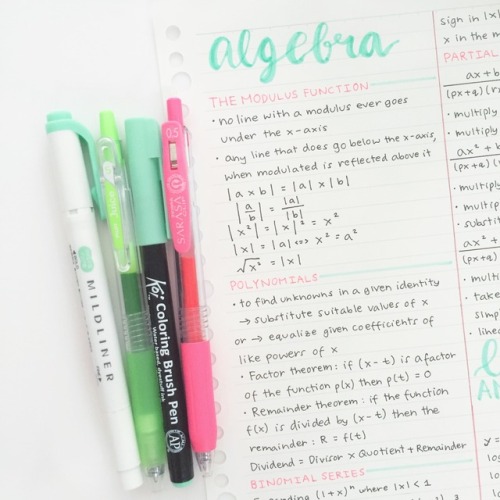 algebra
THE MODULUS FUNCTION
• no line with a modulus ever goes
under the x-axis
• any line that does go below the x-axis,
when modulated is reflected above it
|a x b| = |a| x |b|
|a/b| = |a|/|b|
|x²| = |x|² = x²
|x| = |a| ⇔ x² = a²
√x² = |x|
POLYNOMIALS
• to find unknowns in a given identity
→ substitute suitable values of x
or → equalize given coefficients of
like powers of x
• Factor theorem: if (x - t) is a factor
of the function p(x) then p(t) = 0
• Remainder theorem: if the function
f(x) is divided by (x - t) then the
remainder: R = f(t)
Dividend = Divisor x Quotient + Remainder
BINOMIAL SERIES
(1+x)ⁿ where |x| < 1
sign in |x|
x in the m
PARTIAL
ax + b
(px+q)(r
• multiply
• multiply
ax² + b
(px+q)(r
• multiply
• multip
• substit
ax² +
(px+q)
• multi
• take
simp
• linea
y =
log
MILDLINER
Koi Coloring Brush Pen
AP
0.5
SARASA